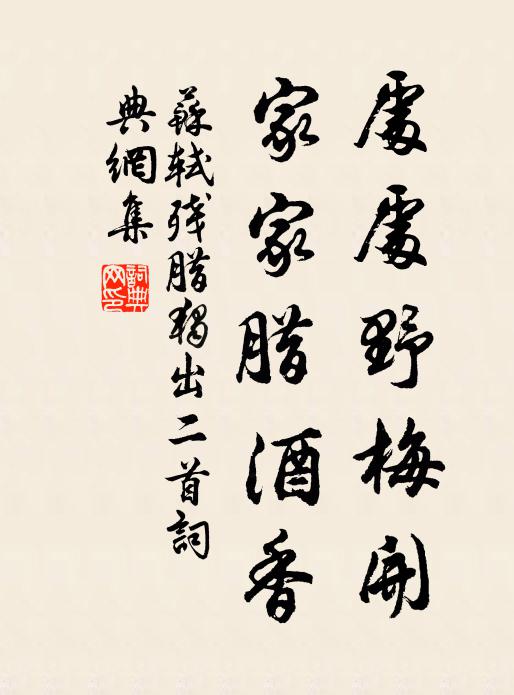 處處野梅開
家家腊酒香
蘇軾残腊獨出二首詞
典網集
詞典
网印